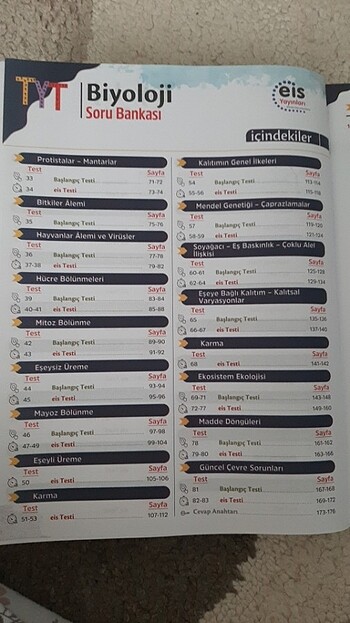 TYT
Biyoloji
Soru Bankası
eis
Yayınları
içindekiler
Protistalar – Mantarlar
Test Sayfa
33 Başlangıç Testi 71-72
34 eis Testi 73-74
Bitkiler Âlemi
Test Sayfa
35 Başlangıç Testi 75-76
Hayvanlar Âlemi ve Virüsler
Test Sayfa
36 Başlangıç Testi 77-78
37-38 eis Testi 79-82
Hücre Bölünmeleri
Test Sayfa
39 Başlangıç Testi 83-84
40-41 eis Testi 85-88
Mitoz Bölünme
Test Sayfa
42 Başlangıç Testi 89-90
43 eis Testi 91-92
Eşeysiz Üreme
Test Sayfa
44 Başlangıç Testi 93-94
45 eis Testi 95-96
Mayoz Bölünme
Test Sayfa
46 Başlangıç Testi 97-98
47-49 eis Testi 99-104
Eşeyli Üreme
Test Sayfa
50 eis Testi 105-106
Karma
Test Sayfa
51-53 eis Testi 107-112
Kalıtımın Genel İlkeleri
Test Sayfa
54 Başlangıç Testi 113-114
55-56 eis Testi 115-118
Mendel Genetiği – Çaprazlamalar
Test Sayfa
57 Başlangıç Testi 119-120
58-59 eis Testi 121-124
Soyağacı – Eş Baskınlık – Çoklu Alel
İlişkisi
Test Sayfa
60-61 Başlangıç Testi 125-128
62-64 eis Testi 129-134
Eşeye Bağlı Kalıtım – Kalıtsal
Varyasyonlar
Test Sayfa
65 Başlangıç Testi 135-136
66-67 eis Testi 137-140
Karma
Test Sayfa
68 eis Testi 141-142
Ekosistem Ekolojisi
Test Sayfa
69-71 Başlangıç Testi 143-148
72-77 eis Testi 149-160
Madde Döngüleri
Test Sayfa
78 Başlangıç Testi 161-162
79-80 eis Testi 163-166
Güncel Çevre Sorunları
Test Sayfa
81 Başlangıç Testi 167-168
82-83 eis Testi 169-172
Cevap Anahtarı 173-176